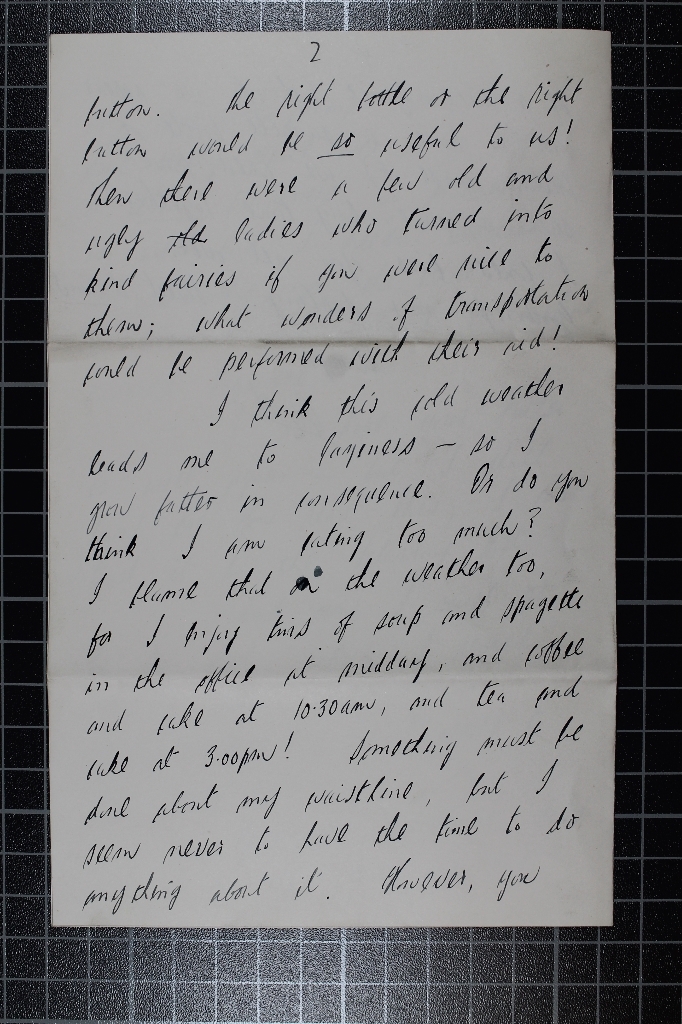 2
button. The right bottle or the right
button would be so useful to us!
Then there were a few old and
ugly old ladies who turned into
kind fairies if you were nice to
them; what wonders of transportation
could be performed with their aid!
I think this cold weather
leads me to laziness – so I
grow fatter in consequence. Or do you
think I am eating too much?
I blame that on the weather too,
for I enjoy tins of soup and spagetti
in the office at midday, and coffee
and cake at 10.30am, and tea and
cake at 3.00pm! Something must be
done about my waistline, but I
seem never to have the time to do
anything about it. However, you